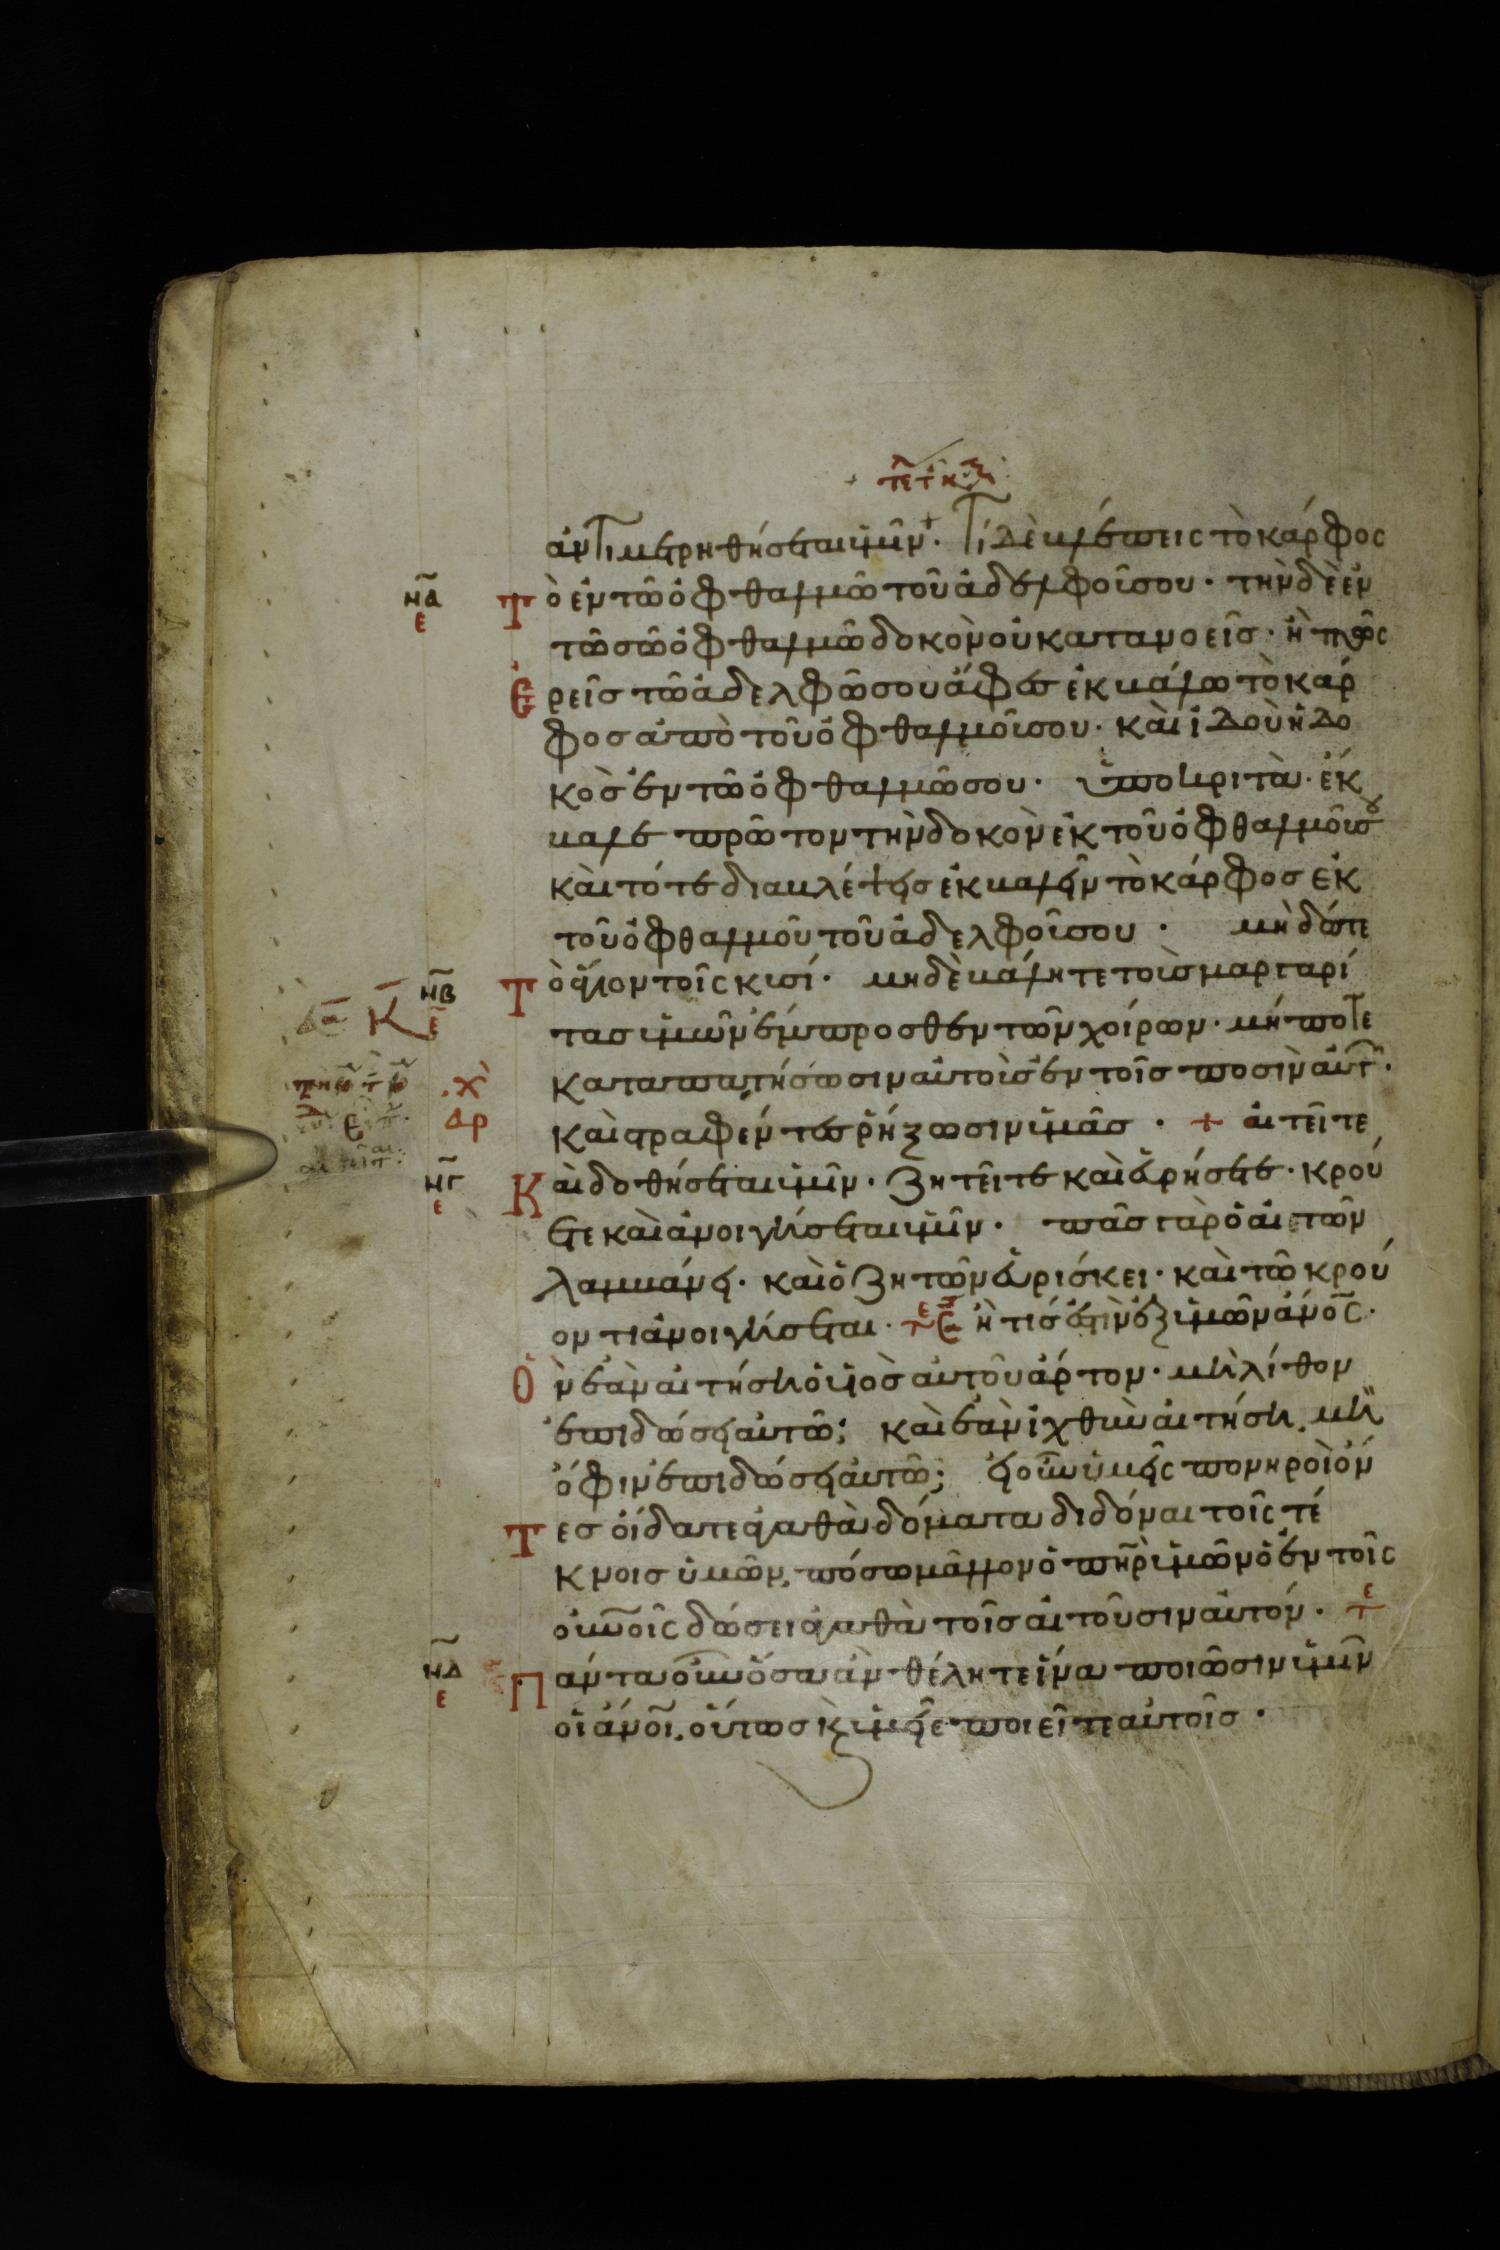 ἀντιμετρηθήσεται ὑμῖν· Τί δὲ βλέπεις τὸ κάρφος
να ε
τὸ ἐν τῶ ὀφθαλμῶ τοῦ ἀδελφοῦ σου· τὴν δὲ ἐν
τῶ σῶ ὀφθαλμῶ δοκὸν οὐ κατανοεῖς· ἢ πῶς
ἐρεῖς τῶ ἀδελφῶ σου ἄφες ἐκβάλω τὸ κάρ
φος ἀπὸ τοῦ ὀφθαλμοῦ σου· καὶ ἰδοὺ ἡ δο
κὸς ἐν τῶ ὀφθαλμῶ σου· ὑποκριτὰ· ἔκ
βαλε πρῶτον τὴν δοκὸν ἐκ τοῦ ὀφθαλμοῦ σου
καὶ τότε διαβλέψεις ἐκβαλεῖν τὸ κάρφος ἐκ
τοῦ ὀφθαλμοῦ τοῦ ἀδελφοῦ σου · μὴ δῶτε
νβ ε
τὸ ἅγιον τοῖς κυσί· μηδὲ βάλητε τοὺς μαργαρί
τας ὑμῶν ἔμπροσθεν τῶν χοίρων· μήποτε
καταπατήσωσιν αὐτοὺς ἐν τοῖς ποσὶν αὐτ·
καὶ στραφέντες ῥήξωσιν ὑμᾶς · + αἰτεῖτε
νγ ε
καὶ δοθήσεται ὑμῖν· ζητεῖτε καὶ εὑρήσετε· κρού
ετε καὶ ἀνοιγήσεται ὑμῖν· πᾶς γὰρ ὁ αἰτῶν
λαμβάνει· καὶ ὁ ζητῶν εὑρίσκει· καὶ τῶ κρού
οντι ἀνοιγήσεται· ἢ τίς ἐστὶν ἐξ ὑμῶν ἀνος·
ὃν ἐὰν αἰτήση ὁ υἱὸς αὐτοῦ ἄρτον· μὴ λίθον
ἐπιδώσει αὐτῶ; καὶ ἐὰν ἰχθὺν αἰτήση, μὴ
ὄφιν ἐπιδώσει αὐτῶ; εἰ οὖν ὑμεῖς πονηροὶ ὄν
τες οἴδατε ἀγαθὰ δόματα διδόναι τοῖς τέ
κνοις ὑμῶν, πόσω μᾶλλον ὁ πηρ ὑμῶν ὁ ἐν τοῖς
οὐνοῖς δώσει ἀγαθὰ τοῖς αἰτοῦσιν αὐτόν·
νδ ε
πάντα οὖν ὅσα ἂν θέλητε ἵνα ποιῶσιν ὑμῖν
οἱ ἄνοι, οὕτως κ ὑμεῖς ποιεῖτε αὐτοῖς ·